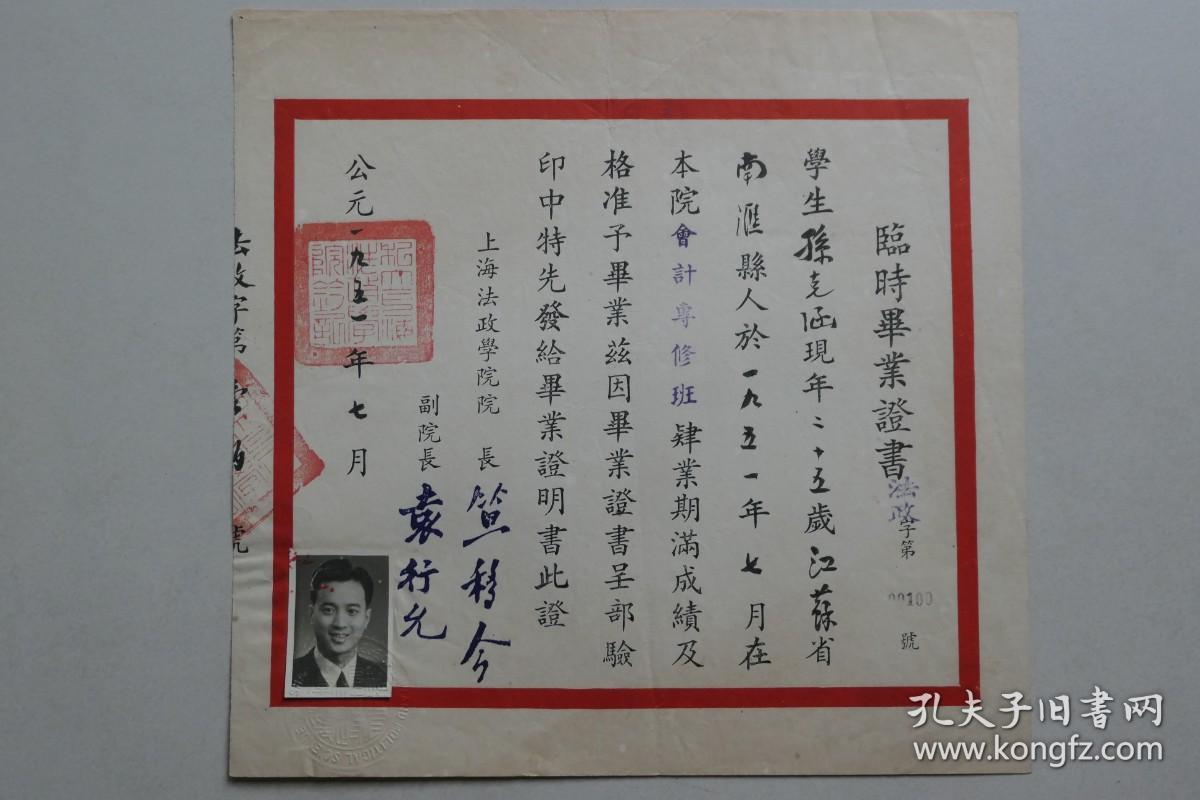 臨時畢業證書
法政字第00100號
學生孫克涵現年二十五歲江蘇省
南滙縣人於一九五一年七月在
本院會計專修班肄業期滿成績及
格准予畢業茲因畢業證書呈部驗
印中特先發給畢業證明書此證
上海法政學院院長 笪移今
副院長 袁行允
公元一九五一年七月
法政字第 號
孔夫子旧书网
www.kongfz.com